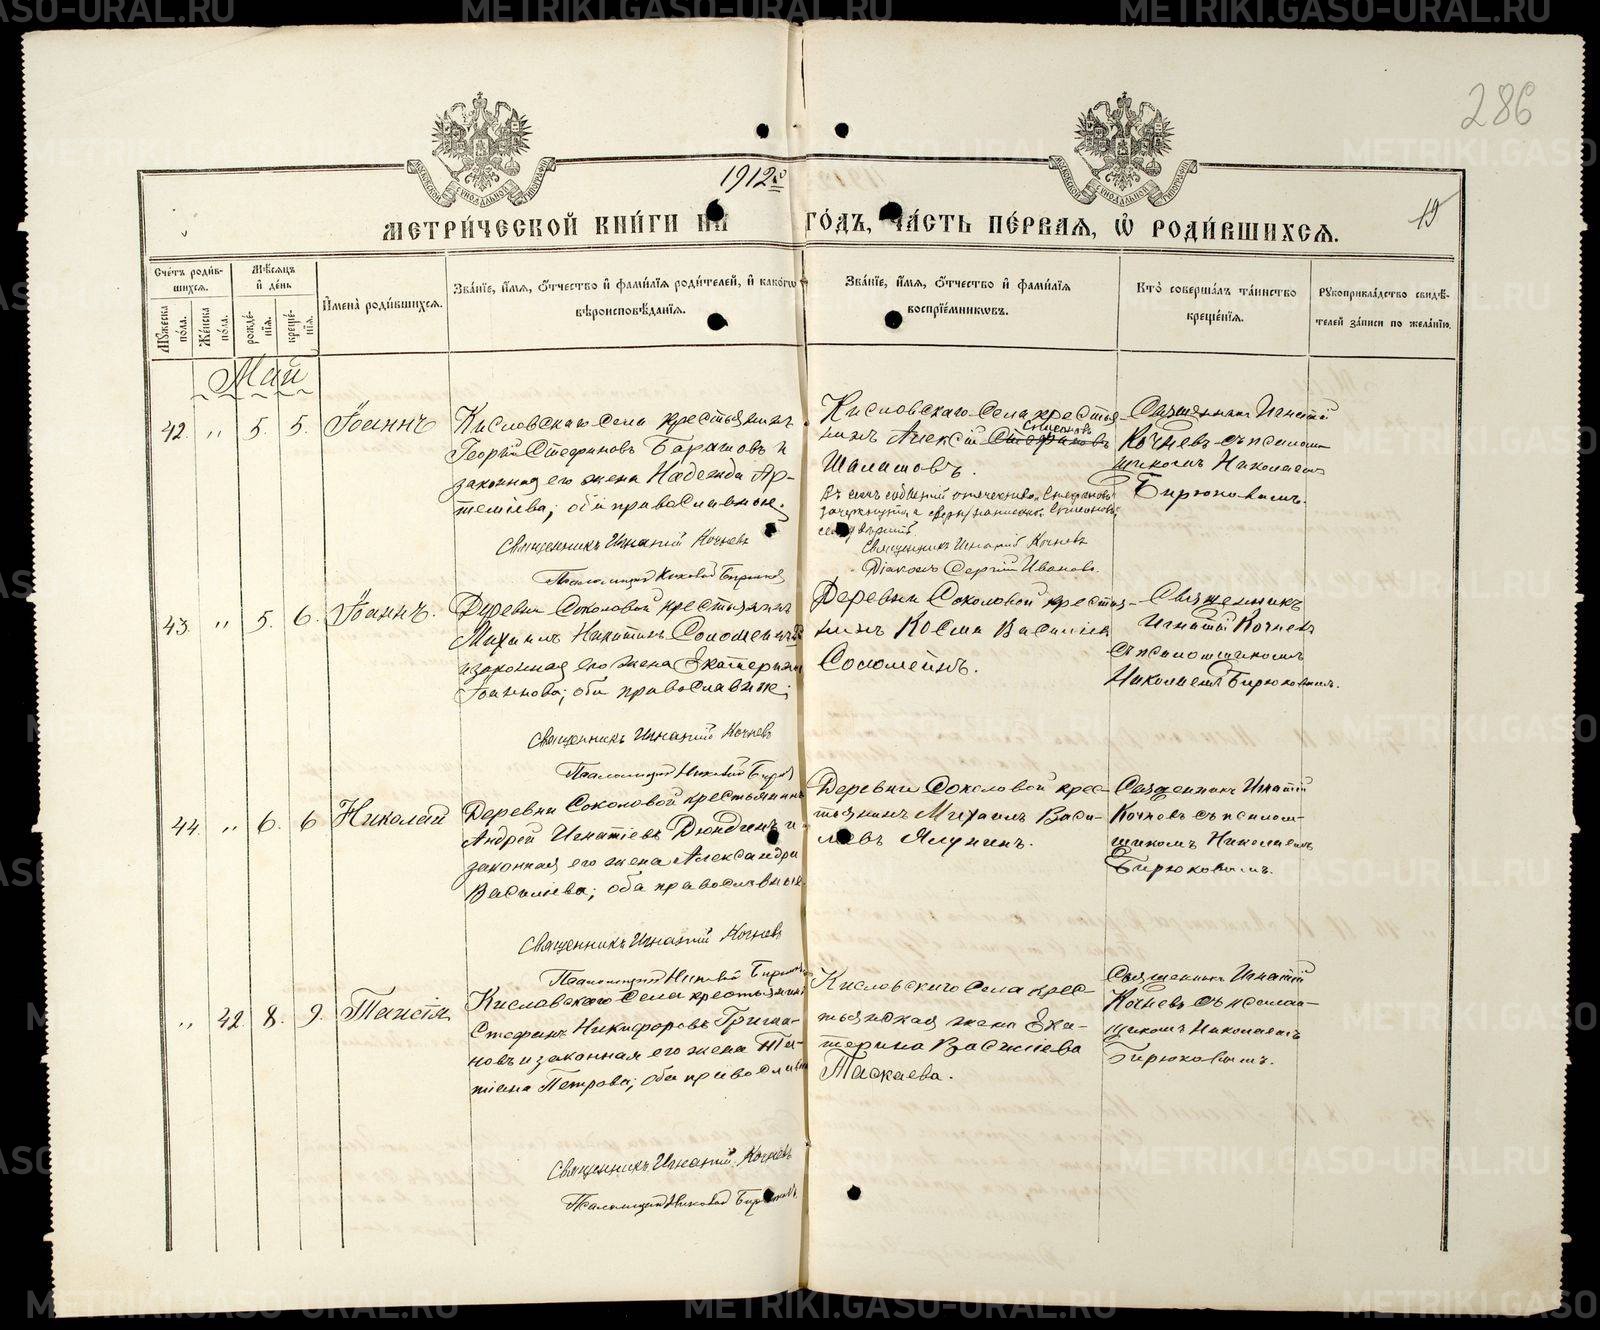 METRIKI.GASO-URAL.RU
286
1912 г.
МЕТРИ́ЧЕСКОЙ КНИ́ГИ НА ГО́ДЪ, ЧА́СТЬ ПЕ́РВАЯ, Ѡ҆ РОДИ́ВШИХСЯ.
19
Сче́тъ роди́в-
шихся.
Му́жеска по́ла.
Же́нска по́ла.
Мѣ́сяцъ и҆ де́нь
рожде́-
нїя.
креще́-
нїя.
И҆мена̀ роди́вшихся.
Зва́нїе, и҆́мя, ѻ҆́тчество и҆ фами́лїя роди́телей, и҆ како́гѡ
вѣроисповѣ́данїя.
Зва́нїе, и҆́мя, ѻ҆́тчество и҆ фами́лїя
воспрїе́мникѡвъ.
Кто̀ соверша́лъ та́инство
креще́нїя.
Рꙋкоприкла́дство свидѣ́-
телей за́писи по жела́нїю.
Май
42. " 5. 5. Іоаннъ
Кисловскаго села крестьянинъ
Георгій Стефановъ Барашовъ и
законная его жена Надежда Ар-
теміева; оба православные.
Священникъ Игнатій Кочневъ
Псаломщикъ Николай Бирюковъ
Кисловскаго Села крестья-
Симеоновъ
нинъ Алексій Стефановъ
Шалашовъ.
Священникъ Игнатій Кочневъ
Діаконъ Сергій Ивановъ
Священникъ Игнатій
Кочневъ съ псалом-
щикомъ Николаемъ
Бирюковымъ.
43. " 5. 6. Іоаннъ.
Деревни Соколовой крестьянинъ
Михаилъ Никитинъ Соломеинъ
и законная его жена Екатерина
Іоаннова; оба православные;
Священникъ Игнатій Кочневъ
Псаломщикъ Николай Бирюковъ
Деревни Соколовой крестья-
нинъ Косма Василіевъ
Соломеинъ.
Священникъ
Игнатій Кочневъ
съ псаломщикомъ
Николаемъ Бирюковымъ.
44. " 6. 6 Николай
Деревни Соколовой крестьянинъ
Андрей Игнатіевъ Дюндинъ и
законная его жена Александра
Василіева; оба православные.
Священникъ Игнатій Кочневъ
Псаломщикъ Николай Бирюковъ
Деревни Соколовой крес-
тьянинъ Михаилъ Васи-
льевъ Ялунинъ.
Священникъ Игнатій
Кочневъ съ псалом-
щикомъ Николаемъ
Бирюковымъ.
" 42. 8. 9. Таисія
Кисловскаго Села крестьянинъ
Стефанъ Никифоровъ Грима-
новъ и законная его жена Та-
тіана Петрова; оба православные
Священникъ Игнатій Кочневъ
Псаломщикъ Николай Бирюковъ
Кисловскаго Села крес-
тьянская жена Ека-
терина Василіева
Таскаева.
Священникъ Игнатій
Кочневъ съ псалом-
щикомъ Николаемъ
Бирюковымъ.